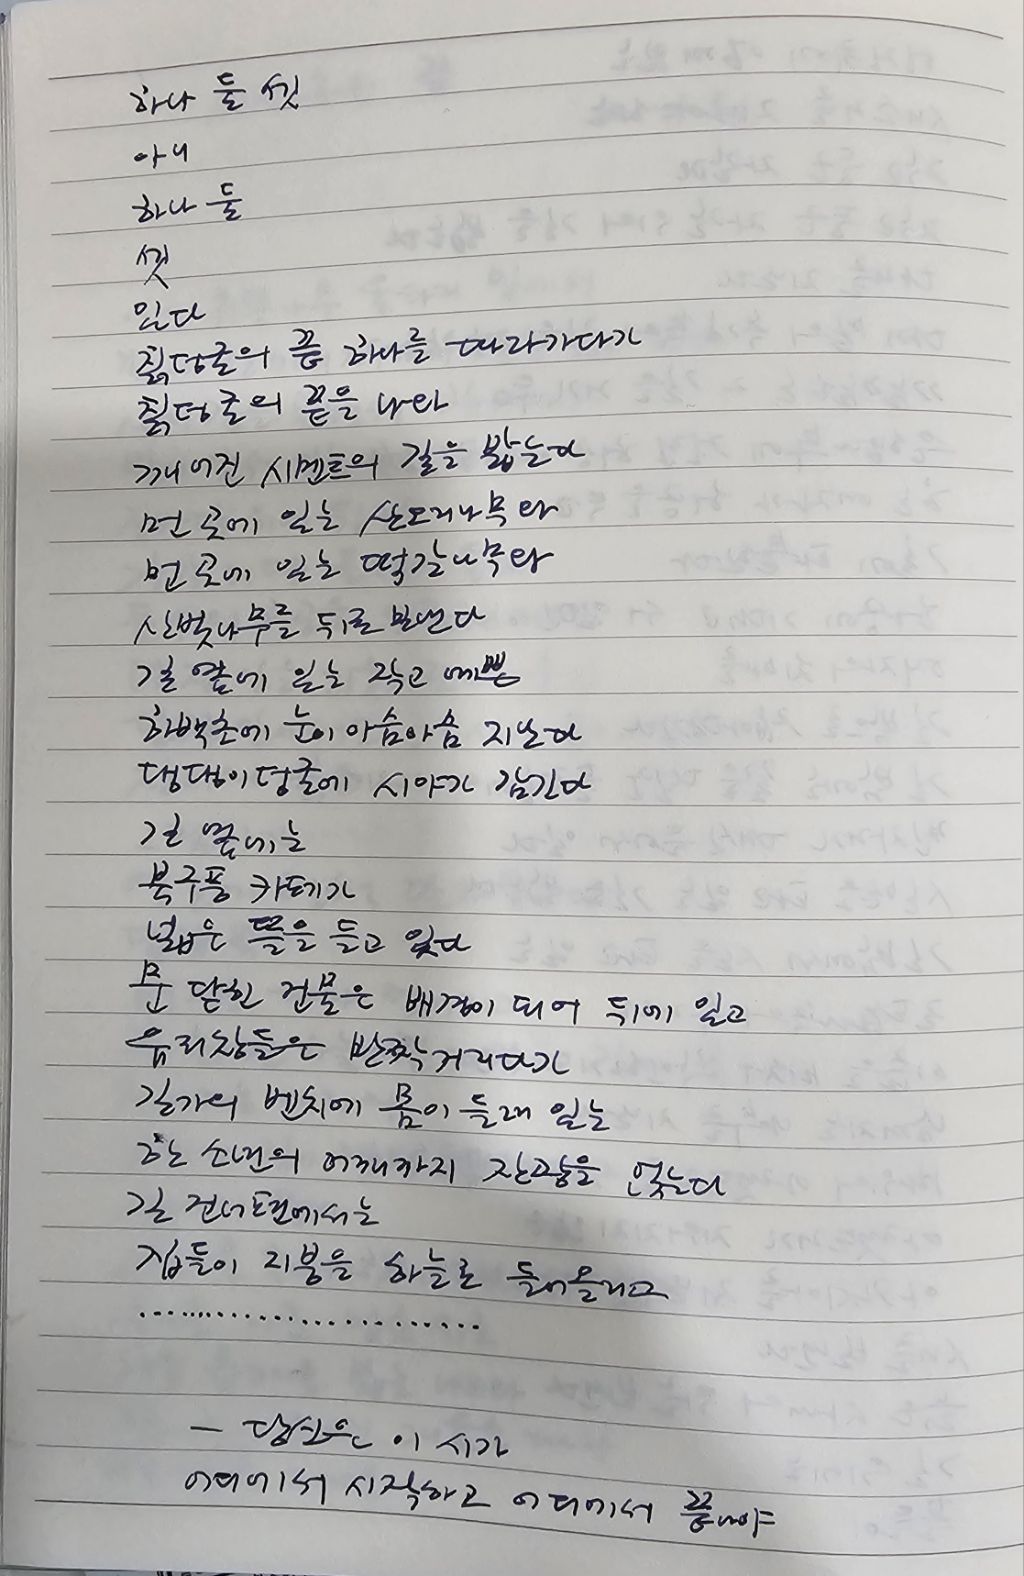 하나 둘 셋
아니
하나 둘
셋
있다
칡덩굴의 끝 하나를 따라가다가
칡덩굴의 끝을 나와
깨어진 시멘트의 길을 밟는다
먼 곳에 있는 상도리나무와
먼 곳에 있는 떡갈나무와
산벚나무를 뒤로 보낸다
길 옆에 있는 작고 예쁜
하백초에 눈이 아슴아슴 지난다
댕댕이덩굴에 시야가 감긴다
길 옆에는
북구풍 카페가
넓은 뜰을 들고 있다
문 닫힌 건물은 배경이 되어 뒤에 있고
유리창들은 반짝거리다가
길가의 벤치에 몸이 들려 있는
한 소년의 어깨까지 잔광을 얹는다
길 건너편에서는
집들이 지붕을 하늘로 들어올리고
.....................
— 당신은 이 시가
어디에서 시작하고 어디에서 끝나야